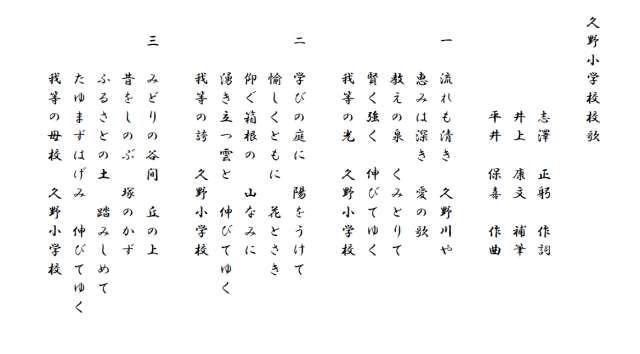 久野小学校校歌
志澤　正躬　作詞
井上　康文　補筆
平井　保喜　作曲
一　流れも清き　久野川や
恵みは深き　愛の歌
教えの泉　くみとりて
賢く強く　伸びてゆく
我等の光　久野小学校
二　学びの庭に　陽をうけて
愉しくともに　花とさき
仰ぐ箱根の　山なみに
湧き立つ雲と　伸びてゆく
我等の誇　久野小学校
三　みどりの谷間　丘の上
昔をしのぶ　塚のかず
ふるさとの土　踏みしめて
たゆまずはげみ　伸びてゆく
我等の母校　久野小学校